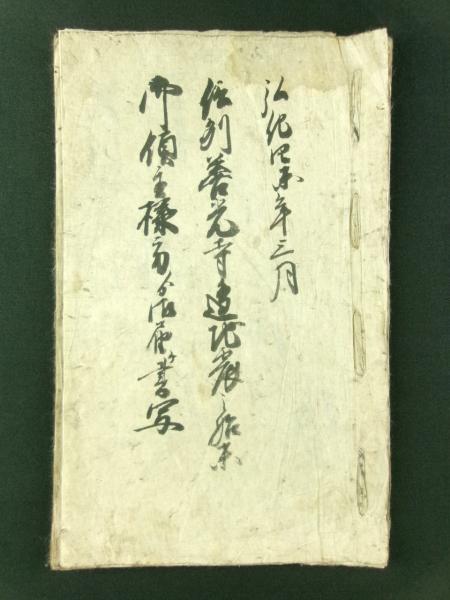 弘化四未年三月
信列善光寺辺地震之始末
御領主様方ゟ御届書写